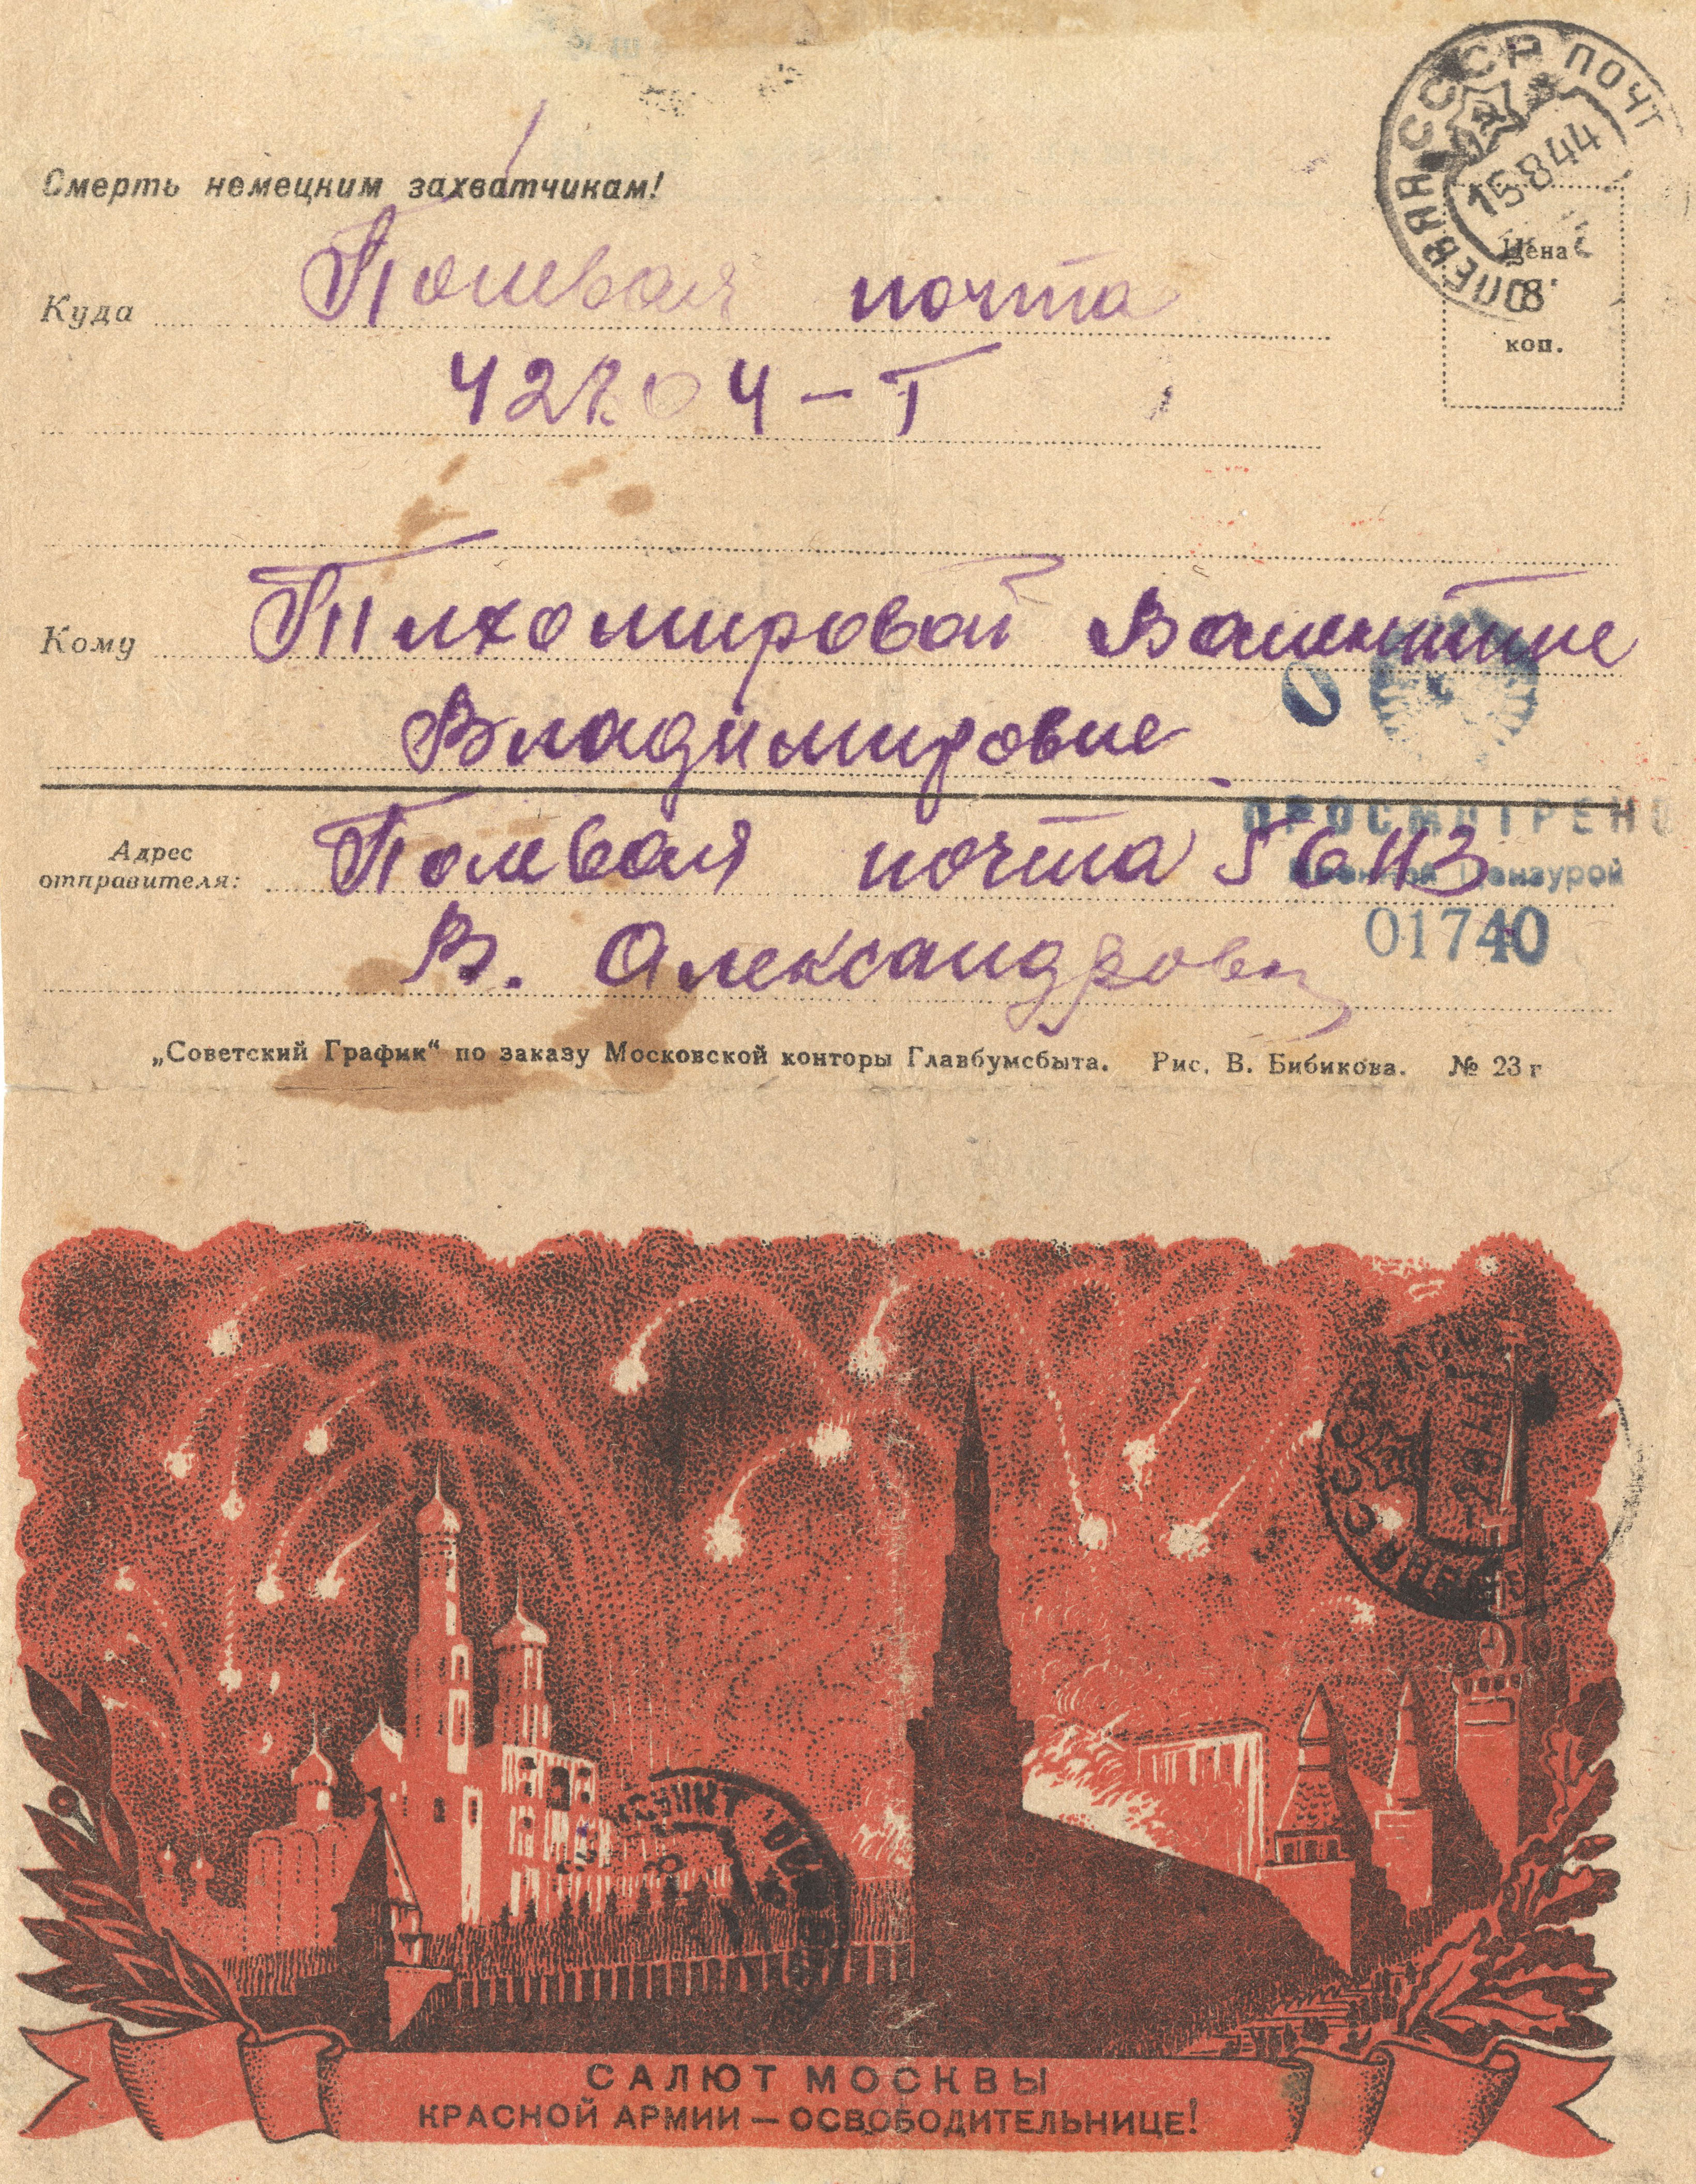 СССР ПОЛЕВАЯ ПОЧТ
15 8 44
Смерть немецким захватчикам!
Цена
8
коп.
Куда Полевая почта
42204-Т
Кому Тихомировой Валентине
Владимировне
ПРОСМОТРЕНО
Военной Цензурой
01740
Адрес
отправителя: Полевая почта 56113
В. Александровы
„Советский График“ по заказу Московской конторы Главбумсбыта. Рис. В. Бибикова. № 23 г
СССР
САЛЮТ МОСКВЫ
КРАСНОЙ АРМИИ — ОСВОБОДИТЕЛЬНИЦЕ!